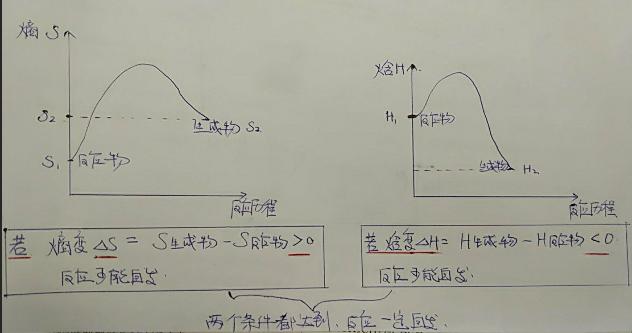 熵 S
S₂
生成物 S₂
S₁
反应物
反应历程
焓 H
H₁
反应物
生成物
H₂
反应历程
若 熵变 △S = S生成物 - S反应物 > 0
反应可能自发.
若焓变△H = H生成物 - H反应物 < 0
反应可能自发.
两个条件都达到, 反应一定自发.